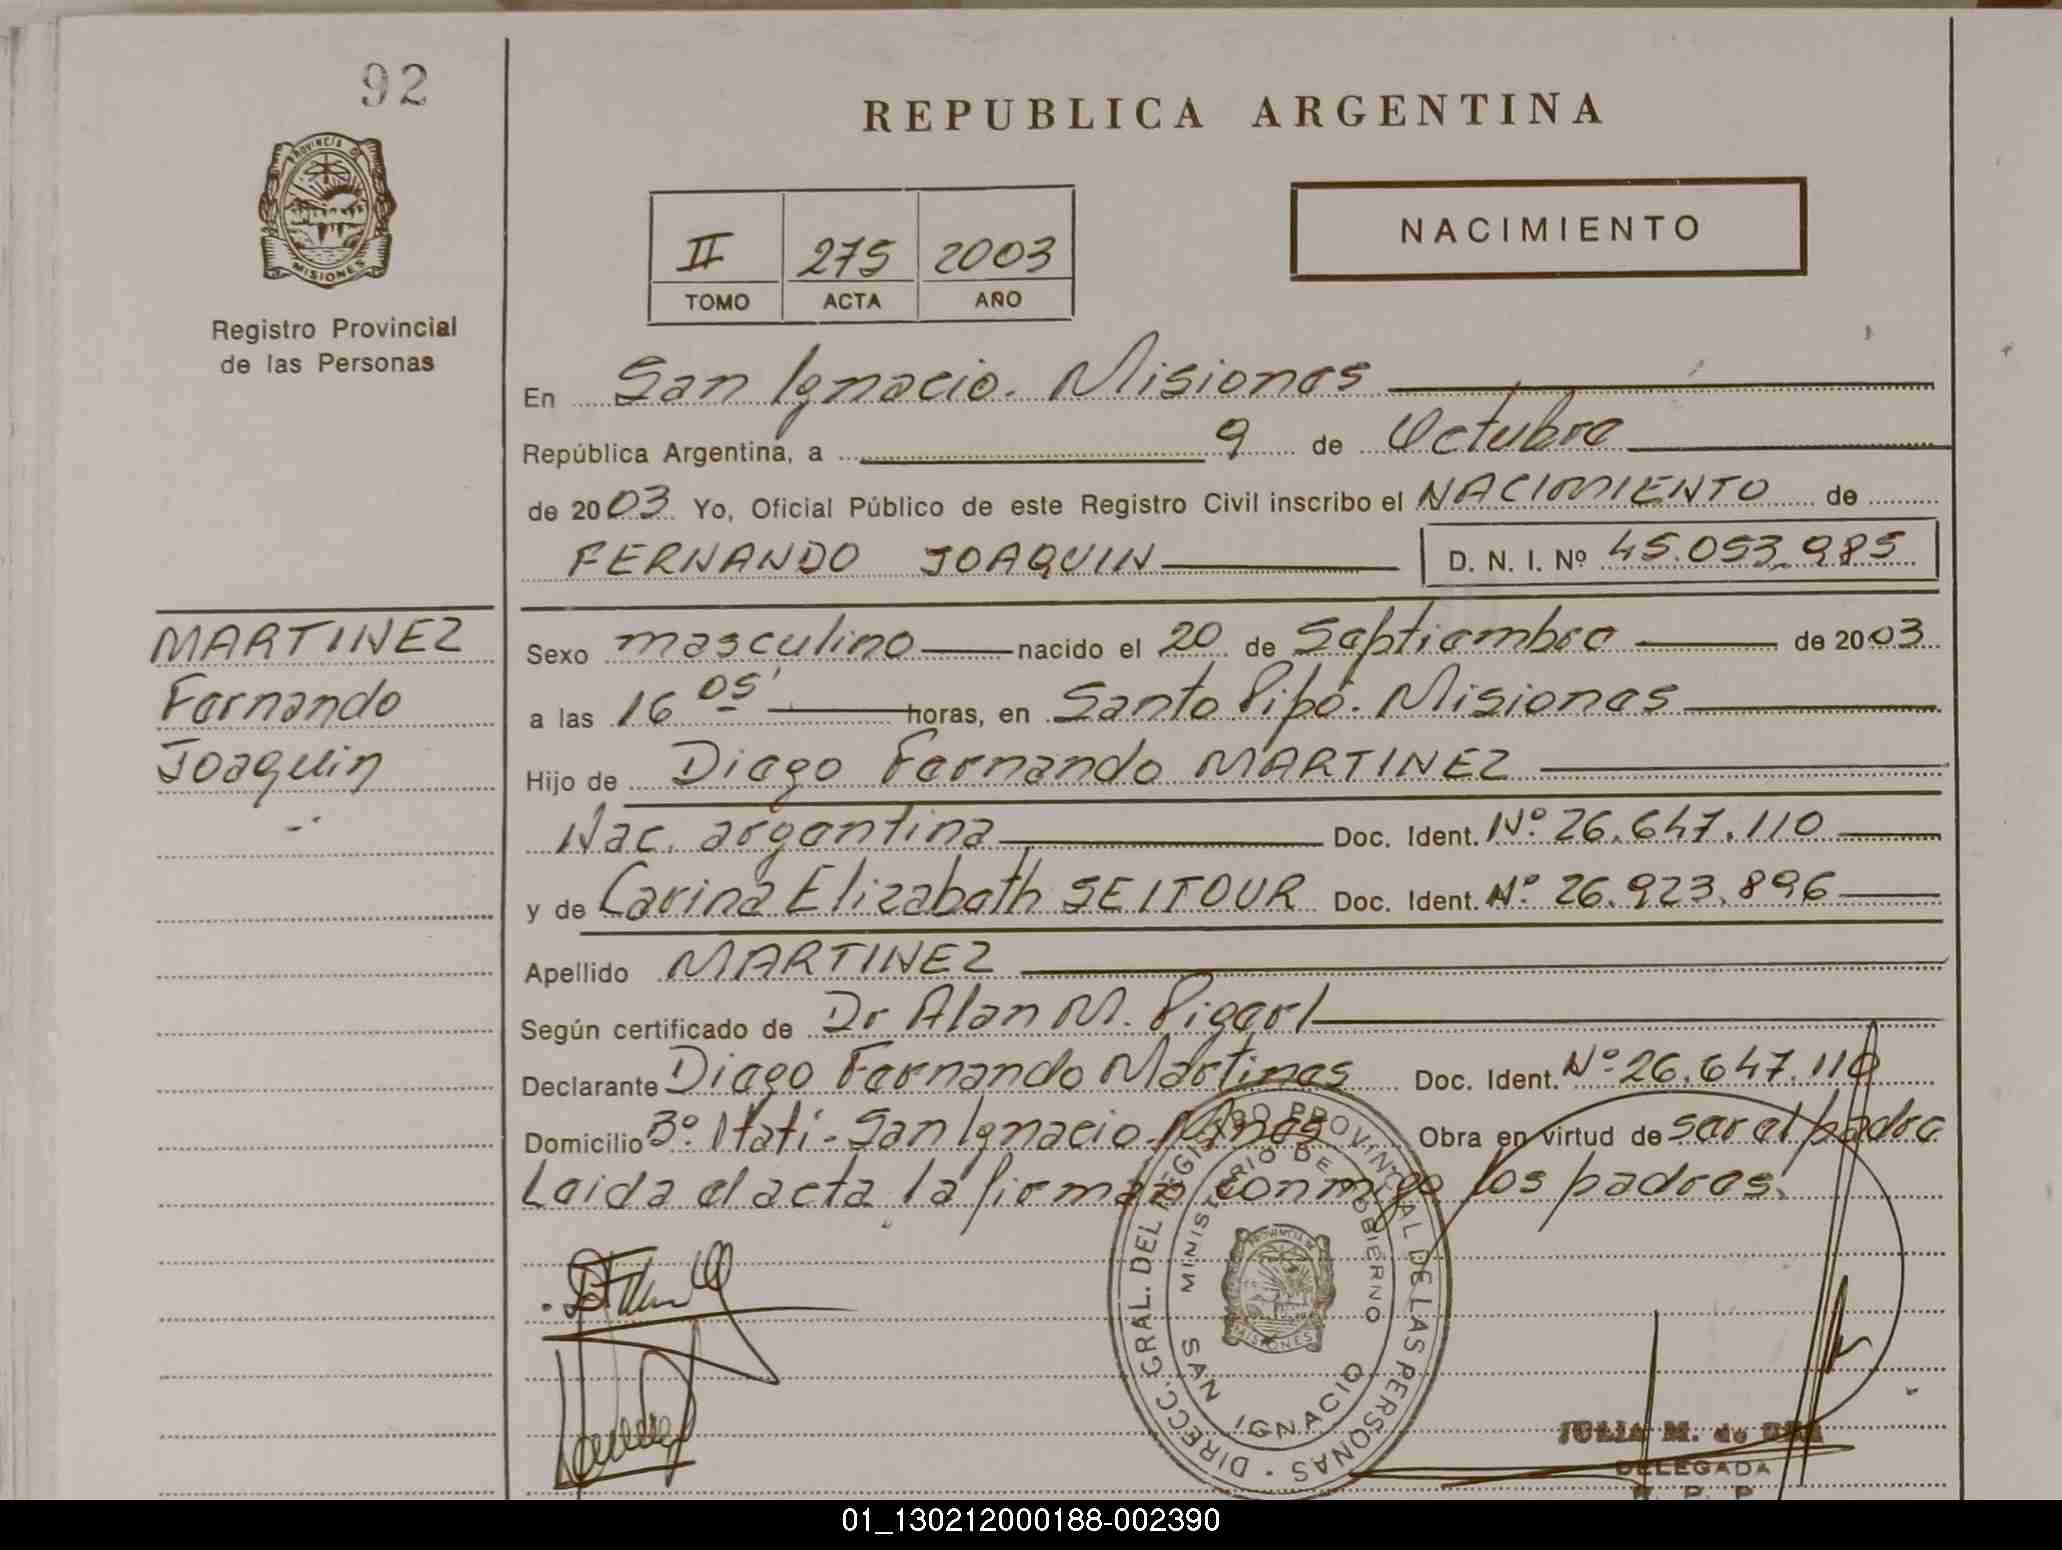 92
REPUBLICA ARGENTINA
PROVINCIA DE
MISIONES
Registro Provincial
de las Personas
II 275 2003
TOMO ACTA AÑO
NACIMIENTO
En San Ignacio. Misiones
República Argentina, a 9 de Octubre
de 2003 Yo, Oficial Público de este Registro Civil inscribo el NACIMIENTO de
FERNANDO JOAQUIN D. N. I. Nº 45.053.985
MARTINEZ
Fernando
Joaquin
Sexo masculino nacido el 20 de Septiembre de 2003
a las 16 05' horas, en Santo Pipó. Misiones
Hijo de Diego Fernando MARTINEZ
Nac. argentina Doc. Ident. Nº 26.647.110
y de Carina Elizabeth SEITOUR Doc. Ident. Nº 26.923.896
Apellido MARTINEZ
Según certificado de Dr Alan M.
Declarante Diego Fernando Martines Doc. Ident. Nº 26.647.110
Domicilio Bº Itatí - San Ignacio Mnes Obra en virtud de ser el padre
Leida el acta la firman conmigo los padres.
DIRECC. GRAL. DEL REGISTRO PROVINCIAL DE LAS PERSONAS
MINISTERIO DE GOBIERNO
SAN IGNACIO
MISIONES
JULIA M. de
DELEGADA
R. P. P.
01_130212000188-002390